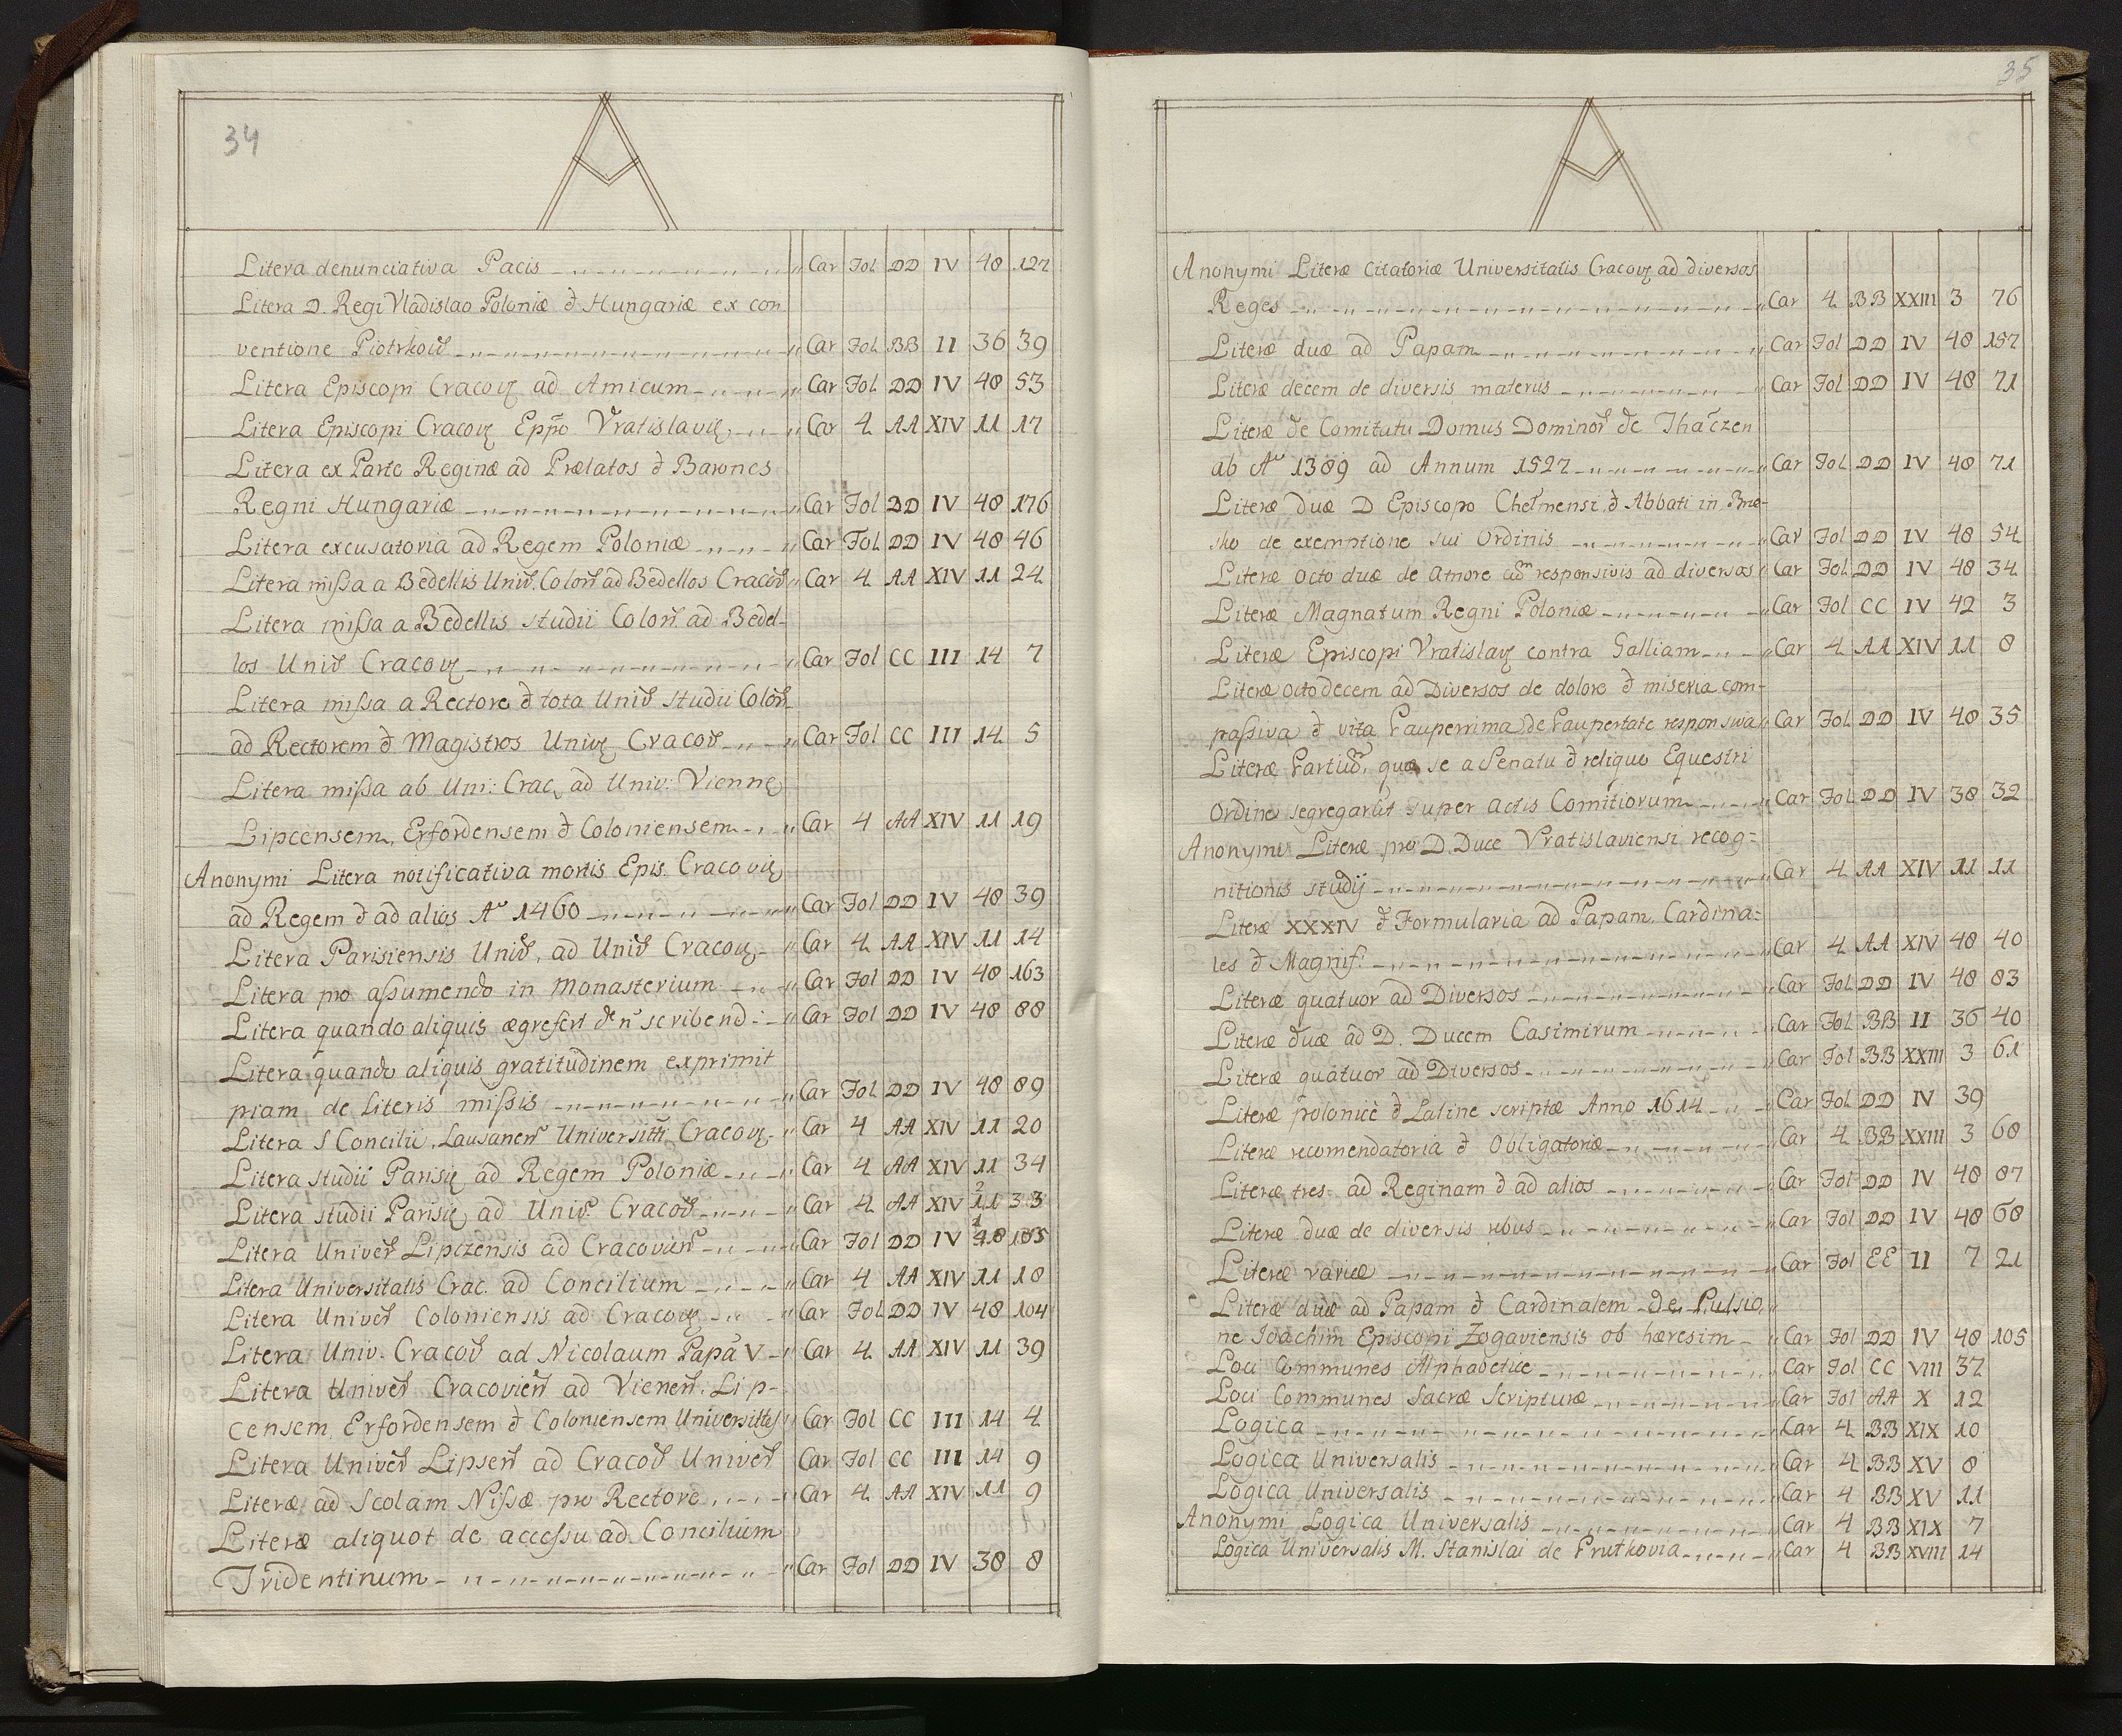 34
A
Litera denunciativa Pacis Car Fol DD IV 48 127
Litera D. Regi Vladislao Poloniæ & Hungariæ ex con
ventione Piotrkov Car Fol BB II 36 39
Litera Episcopi Cracov ad Amicum Car Fol DD IV 48 53
Litera Episcopi Cracov Eppo Vratislavię Car 4 AA XIV 11 17
Litera ex Parte Reginæ ad Prælatos & Barones
Regni Hungariæ Car Fol DD IV 48 176
Litera excusatoria ad Regem Poloniæ Car Fol DD IV 48 46
Litera missa a Bedellis Univ. Colon ad Bedellos Cracov Car 4 AA XIV 11 24
Litera missa a Bedellis studii Colon ad Bedel-
los Univ Cracov Car Fol CC III 14 7
Litera missa a Rectore & tota Univ studii Colon
ad Rectorem & Magistros Univ Cracov Car Fol CC III 14 5
Litera missa ab Uni: Crac ad Univ: Viennę
Lipcensem, Erfordensem & Coloniensem Car 4 AA XIV 11 19
Anonymi Litera notificativa mortis Epis. Cracovię
ad Regem & ad alios Aº 1460 Car Fol DD IV 48 39
Litera Parisiensis Univ, ad Univ Cracov Car 4 AA XIV 11 14
Litera pro assumendo in Monasterium Car Fol DD IV 48 163
Litera quando aliquis ægrescri scribend: Car Fol DD IV 48 88
Litera quando aliquis gratitudinem exprimit
priam de literis missis Car Fol DD IV 48 89
Litera S Concilii Lausanen Universitti Cracov Car 4 AA XIV 11 20
Litera studii Parisię ad Regem Poloniæ Car 4 AA XIV 11 34
Litera studii Parisię ad Univ. Cracov Car 4 AA XIV 11 33
Litera Univer Lipczensis ad Cracovien Car Fol DD IV 48 105
Litera Universitatis Crac. ad Concilium Car 4 AA XIV 11 18
Litera Univer Coloniensis ad Cracov Car Fol DD IV 48 104
Litera Univ. Cracov ad Nicolaum Papā V Car 4 AA XIV 11 39
Litera Univer Cracovien ad Vienen. Lip-
censem Erfordensem & Coloniensem Universittes Car Fol CC III 14 4
Litera Univer Lipsen ad Cracov Univer Car Fol CC III 14 9
Literæ ad Scolam Nissæ pro Rectore Car 4 AA XIV 11 9
Literæ aliquot de accessu ad Concilium
Tridentinum Car Fol DD IV 38 8
35
A
Anonymi Literæ Citatoriæ Universitatis Cracov ad diversos
Reges Car 4 BB XXIII 3 76
Literæ duæ ad Papam Car Fol DD IV 48 157
Literæ decem de diversis materiis Car Fol DD IV 48 71
Literæ de Comitutu Domus Dominor de Thaczen
ab Aº 1389 ad Annum 1527 Car Fol DD IV 48 71
Literæ duæ D Episcopo Chelmensi & Abbati in Bre-
sko de exemptione sui Ordinis Car Fol DD IV 48 54
Literæ Octo duæ de Amore cum responsivis ad diversos Car Fol DD IV 48 34
Literæ Magnatum Regni Poloniæ Car Fol CC IV 42 3
Literæ Episcopi Vratislavę contra Galliam Car 4 AA XIV 11 8
Literæ octodecem ad Diversos de dolore & miseria com-
passiva & vita Pauperrima de Paupertate responsiva Car Fol DD IV 48 35
Literæ Partium, quæ se a Senatu & reliquo Equestri
Ordine segregarut super actis Comitiorum Car Fol DD IV 38 32
Anonymi Literæ pro D. Duce Vratislaviensi recog=
nitionis studij Car 4 AA XIV 11 11
Literæ XXXIV & Formularia ad Papam, Cardina=
les & Magnif: Car 4 AA XIV 48 40
Literæ quatuor ad Diversos Car Fol DD IV 48 83
Literæ duæ ad D. Ducem Casimirum Car Fol BB II 36 40
Literæ quatuor ad Diversos Car Fol BB XXIII 3 61
Literæ polonicè & Latine scriptæ Anno 1614 Car Fol DD IV 39
Literæ recomendatoria & Obligatoriæ Car 4 BB XXIII 3 68
Literæ tres ad Reginam & ad alios Car Fol DD IV 48 87
Literæ duæ de diversis rebus Car Fol DD IV 48 68
Literæ variæ Car Fol EE II 7 21
Literæ duæ ad Papam & Cardinalem de Pulsio
ne Joachim Episcopi Zogaviensis ob hæresim Car Fol DD IV 48 105
Loci Communes Alphabetice Car Fol CC VIII 37
Loci Communes Sacræ Scripturæ Car Fol AA X 12
Logica Car 4 BB XIX 10
Logica Universalis Car 4 BB XV 8
Logica Universalis Car 4 BB XV 11
Anonymi Logica Universalis Car 4 BB XIX 7
Logica Universalis M. Stanislai de Prutkovia Car 4 BB XVIII 14